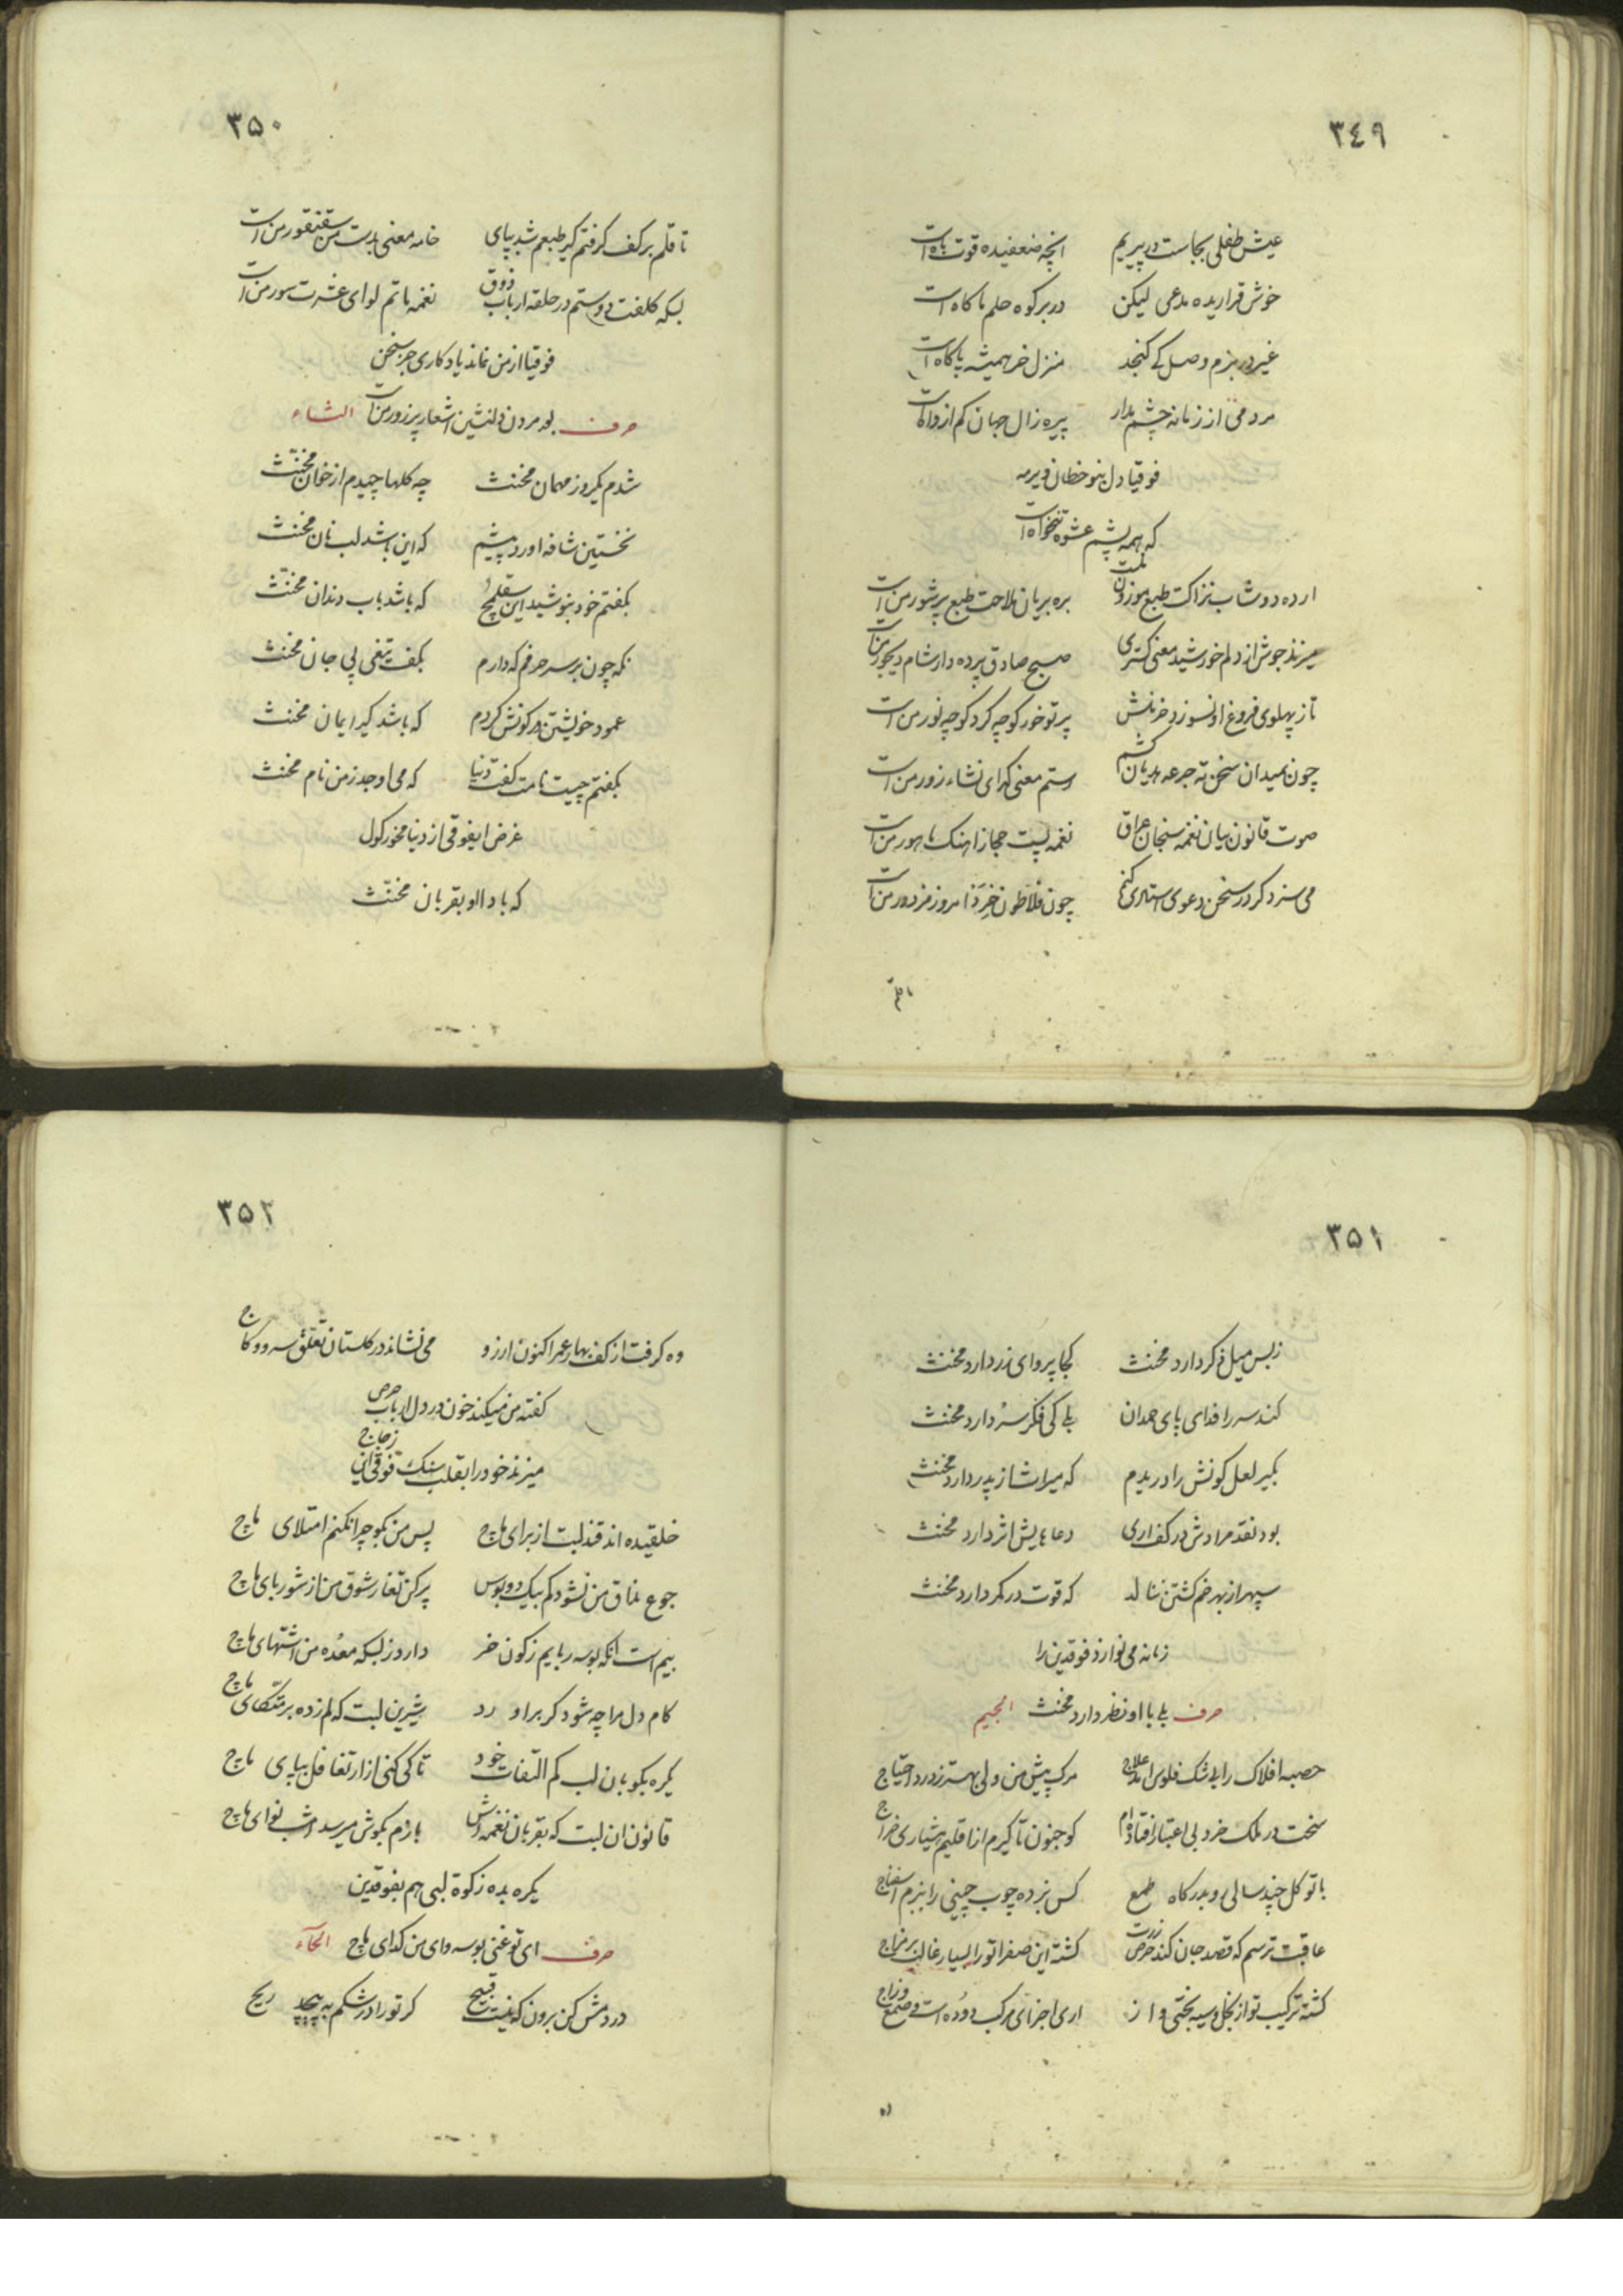 ٣٤٩
عیش طفلی بجاست در پیریم انچه ضعفیده قوت باه است
خوش قراریده مدعی لیکن در بر کوه حلم ما کاه است
غیر در بزم وصل کے کنجد منزل خر همیشه پاکاه است
مردمی از زمانه چشم مدار پیره زال جهان کم از داه است
فوقیا دل بنو خطان ندیده
که همه پشم عشوه تنخواه است
ارده دوشاب نزاکت طبع موزون منست بره بریان ملاحت طبع پرشور من است
میزند جوش از دلم خورشید معنی کستری صبح صادق پرده دار شام دیجور من است
تا ز پهلوی فروغ او نسوزد خرمنش پرتو خور کوچه کرد کوچه نور من است
چون بمیدان سخن ته جرعه هذیان کشم رستم معنی کدای نشاء زور من است
صوت قانون بیان نغمه سنجان عراق نغمه پست حجاز اهنک ماهور من است
می سزد کر در سخن دعوی استادی کنم چون فلاطون خرد امروز مزدور من است
تا قلم
٣۵۰
تا قلم بر کف کرفتم کیر طبعم شد بپای خامه معنی بدست من سقنقور من است
بسکه کلفت دوستم در حلقه ارباب ذوق نغمه ماتم لوای عشرت سور من است
فوقیا از من نماند یادکاری جز سخن
حرف بعد مردن دلنشین اشعار پر زور من است الثاء
شدم یکروز مهمان مخنث چه کلها چیدم از خوان مخنث
نخستین شافه اورد پیشم که این باشد لب نان مخنث
بکفتم خود بنوشید این سقلمچ که باشد باب دندان مخنث
نکه چون بر سر حرفم که دارم بکف تیغی پی جان مخنث
عمود خویشتن در کونش کردم که باشد کیر ایمان مخنث
بکفتم چیست نامت کفت دنیا که می اوجد ز من نام مخنث
غرض ایفوقی از دنیا مخور کول
که بادا او بقربان مخنث
٣۵١
ز بس میل ذکر دارد مخنث کجا پروای زر دارد مخنث
کند سر را فدای پای حمدان بلے کی فکر سر دارد مخنث
بکیر لعل کونش را دریدم که میراث از پدر دارد مخنث
بود نقد مرادش در کف اری دعاهایش اثر دارد مخنث
سپهر از بهر خم کشتن ننالد که قوت در کمر دارد مخنث
زمانه می نوازد فوقدین را
حرف بلے با او نظر دارد مخنث الجیم
حصبه افلاک را بی شک فلوس امد علاج مرک پیش من ولی بهتر ز درد احتیاج
سخت در ملک خرد بی اعتبار افتاده ام کو جنون تا کیرم از اقلیم هشیاری خراج
با توکل چند سالی رو بدرکاه طمع کس نزده چوب چینی را بنزم اسفناج
عاقبت ترسم که قصد جان کند حرص زرت کشته این صفرا تو را بسیار غالب بر مزاج
کشته ترکیب تو از بخل و سیه بختی و از اری اجزای مرکب دوده است و صمغ و زاج
وه
٣۵٢
وه کرفت از کف بهار عمر اکنون ارزو می نشاند در کلستان تعلق سرو و کاج
کفته من میکند خون در دل ارباب حرص
میزند خود را بقلب سنک فوقی این زجاج
خلقیده اند قند لبت از برای ماچ پس من بکو چرا نکنم امتلای ماچ
جوع مذاق من نشود کم بیک دو بوس پر کن تغار شوق من از شوربای ماچ
بیم است انکه بوسه ربایم ز کون خر دارد ز بسکه معده من اشتهای ماچ
کام دل مرا چه شود کر براورد شیرین لبت که لم زده بر متکای ماچ
یکره بکو بان لب کم التفات خود تا کی کنی ازار تغافل بپای ماچ
قانون ان لبت که بقربان نغمه اش بازم بکوش میرسد امشب نوای ماچ
یکره بده زکوة لبی هم بفوقدین
حرف ای تو غنی بوسه و ای من کدای ماچ الحاء
در دمش کن برون که نیست قبیح کر تو را در شکم به پیچد ریح